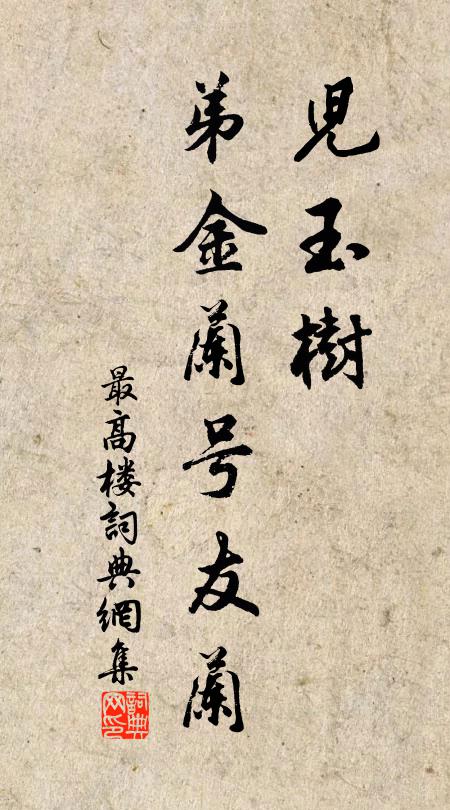 児玉樹
弟金蘭号友蘭
最高楼詞典網集
詞典网印